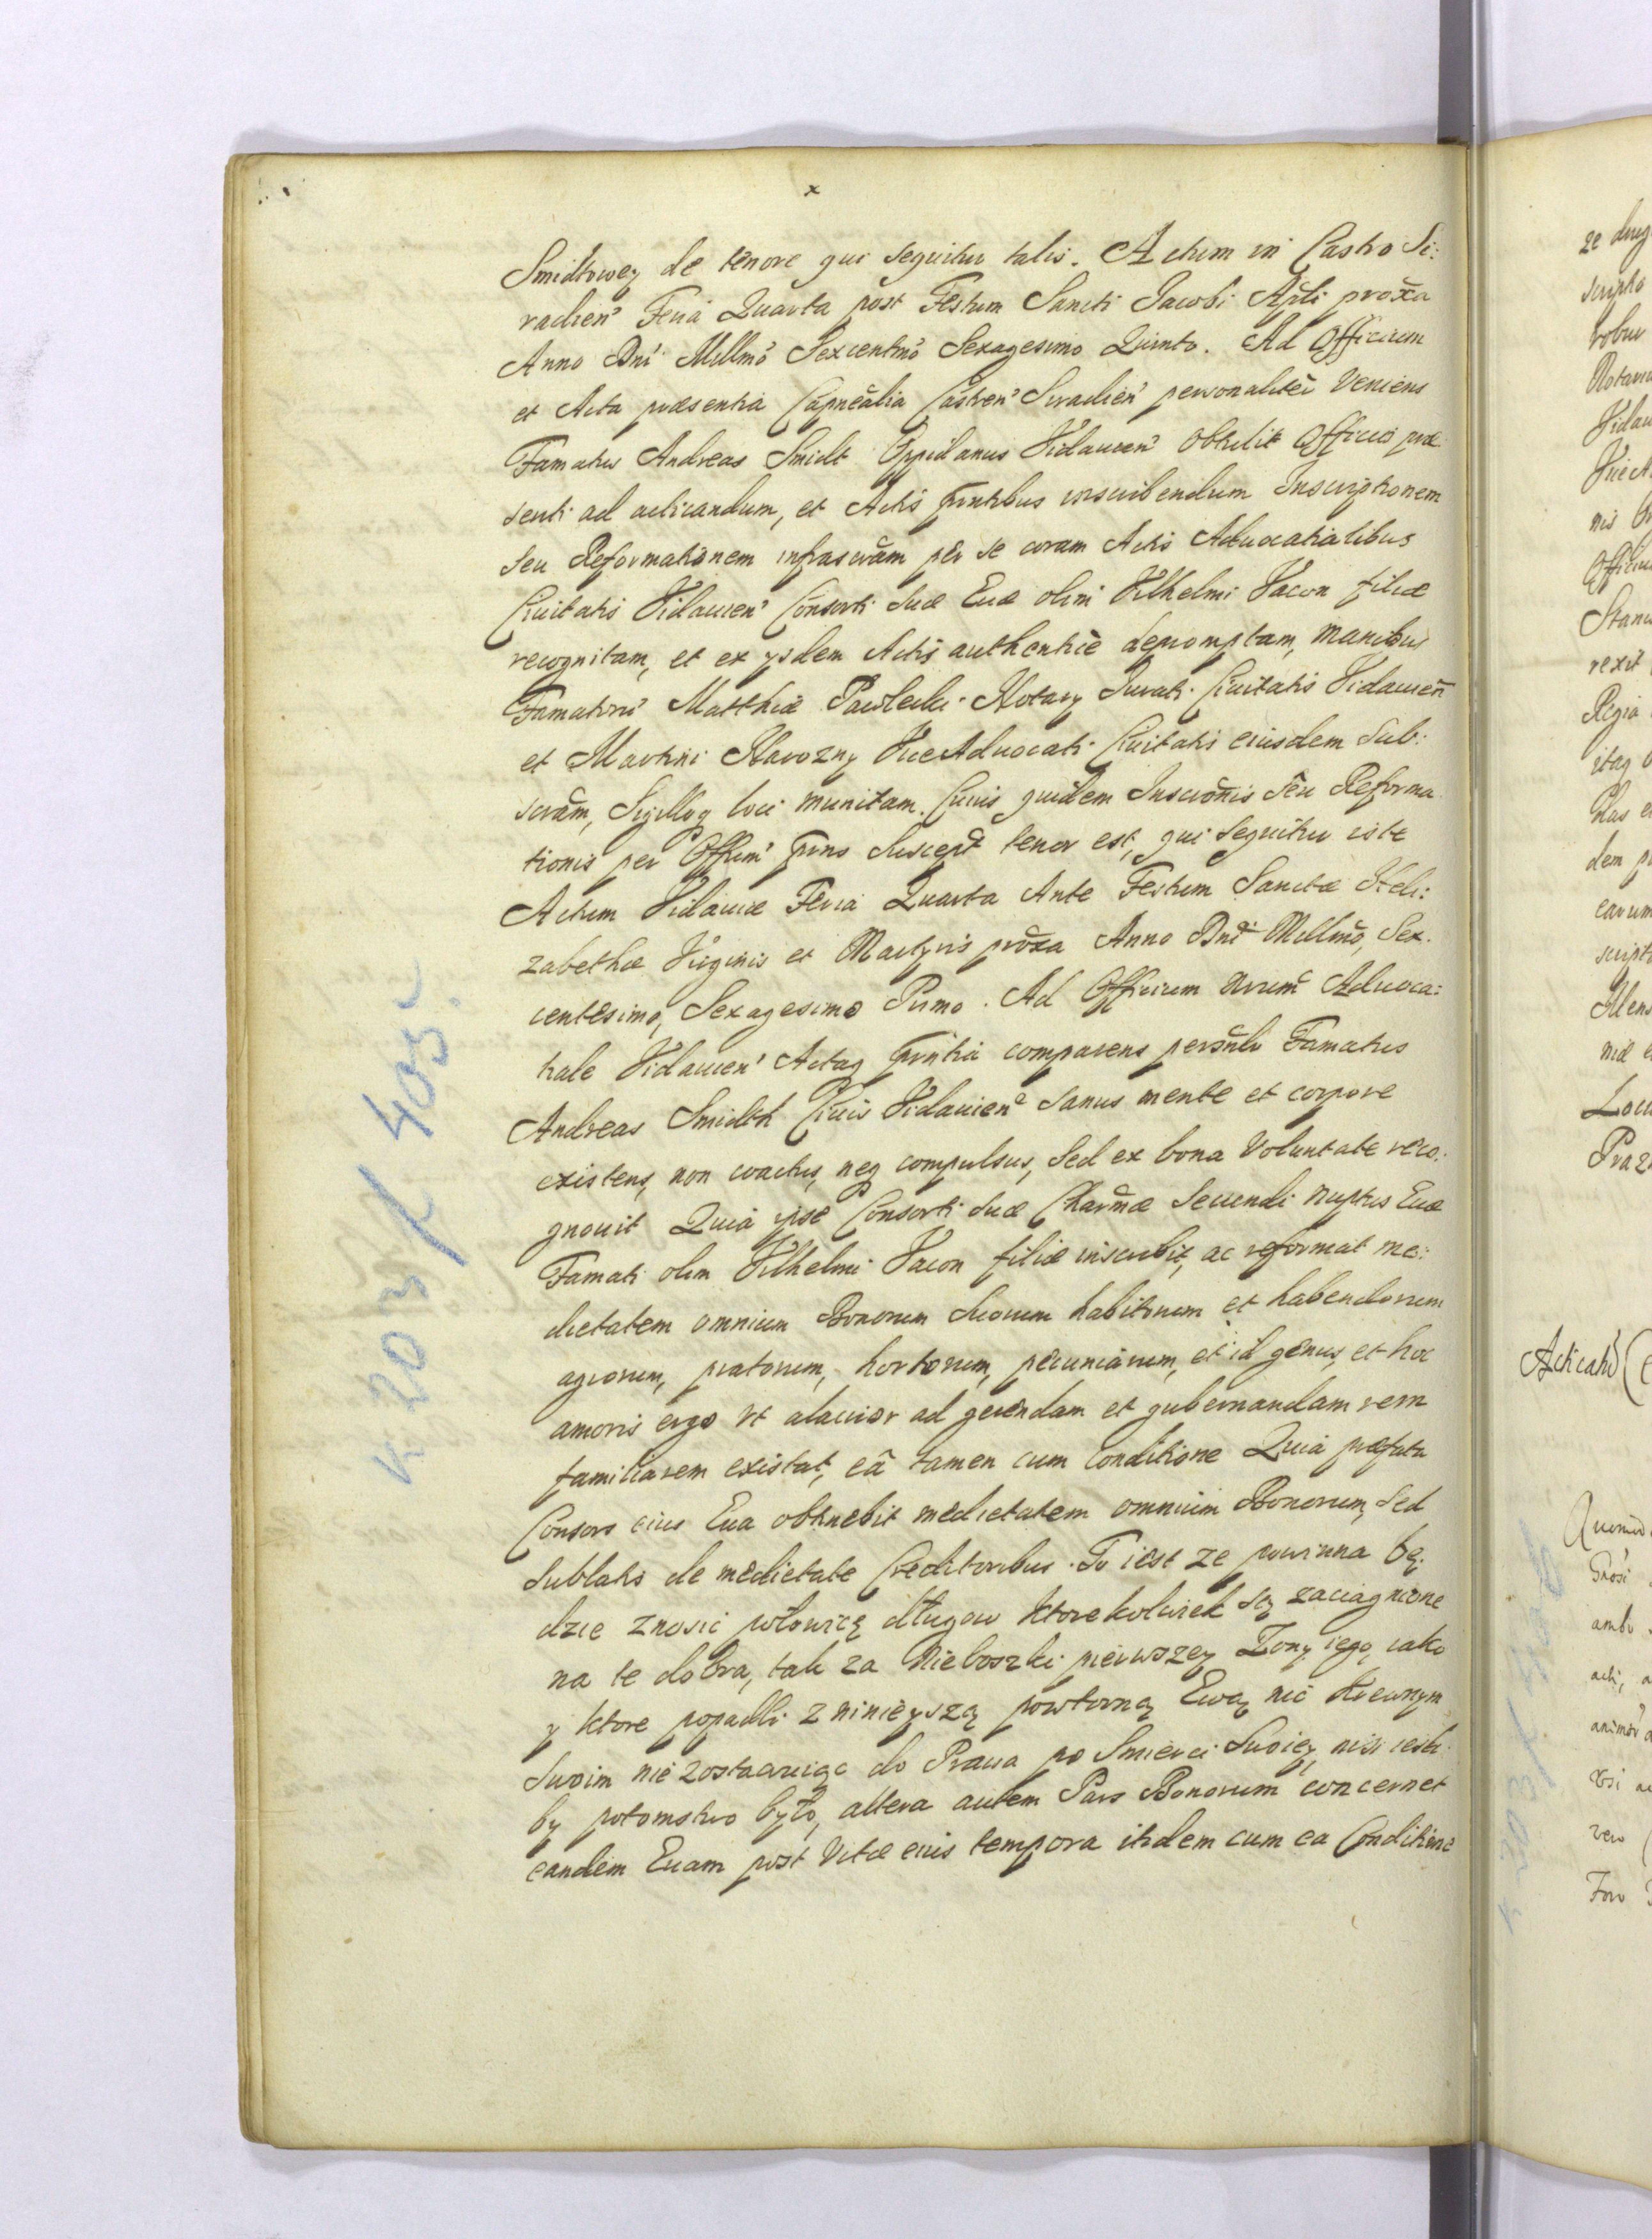 x
Smidtowey de tenore qui sequitur talis. Actum in Castro Si:
radien Feria Quarta post Festum Sancti Jacobi Apli proxa
Anno Dni Millmo Sexcentmo Sexagesimo Quinto. Ad Officium
et Acta præsentia Capnealia Castren Siradien personaliter Veniens
Famatus Andreas Smidt Oppidanus Vidavien Obtulit Officio præ
senti ad acticandum, et Actis pntibus inscribendum Inscriptionem
seu Reformationem infrascram per se coram Actis Advocatialibus
Civitatis Vidavien Consorti suæ Evæ olim Vilhelmi Vacon filiæ
recognitam, et ex ysdem Actis authentice depromptam, manibus
Famatoru Matthiæ Pawlecki Notary Jurati Civitatis Vidavien
et Martini Narozny ViceAdvocati Civitatis eiusdem Sub:
scram, Sigilloq loci munitam. Cuius quidem Inscronis seu Reforma
tionis per Offium pns suscept tenor est, qui sequitur iste
Actum Vidaviæ Feria Quarta Ante Festum Sanctæ Heli:
zabethæ Virginis et Martyris proxa Anno Dni Millmo, Sex.
centesimo, Sexagesimo Primo. Ad Officium nrum Advoca:
tiale Vidavien Actaq pntia comparens personlr Famatus
Andreas Smidth Civis Vidavien sanus mente et corpore
existens, non coactus, neq compulsus, sed ex bona Voluntate reco:
gnovit Quia ipse Consorti suæ Charmæ Secundi nuptus Evæ
Famati olim Vilhelmi Vacon filiæ inscribit, ac reformat me:
dietatem omnium Bonorum suorum habitorum et habendorum
agrorum, pratorum, hortorum, pecuniarum, et id genus, et hoc
amoris ergo vt alacrior ad gerendam et gubernandam rem
familiarem existat, eâ tamen cum Conditione Quia præfata
Consors eius Eva obtinebit medietatem omnium Bonorum, sed
sublatis de medietate Creditoribus. To iest ze powinna bę:
dzie znosic połowicę długow ktorekolwiek są zaciągnione
na te dobra, tak za Nieboszki pierwszey Zony iego, iako
y ktore popadli z ninieyszą powtorną Ewą nic krewnym
Swoim nie zostawuiąc do Prawa po Smierci Swoiey, nisi iesli:
by potomstwo było, altera autem Pars Bonorum concernet
eandem Evam post Vitæ eius tempora itidem cum ea Conditione
k 203/405